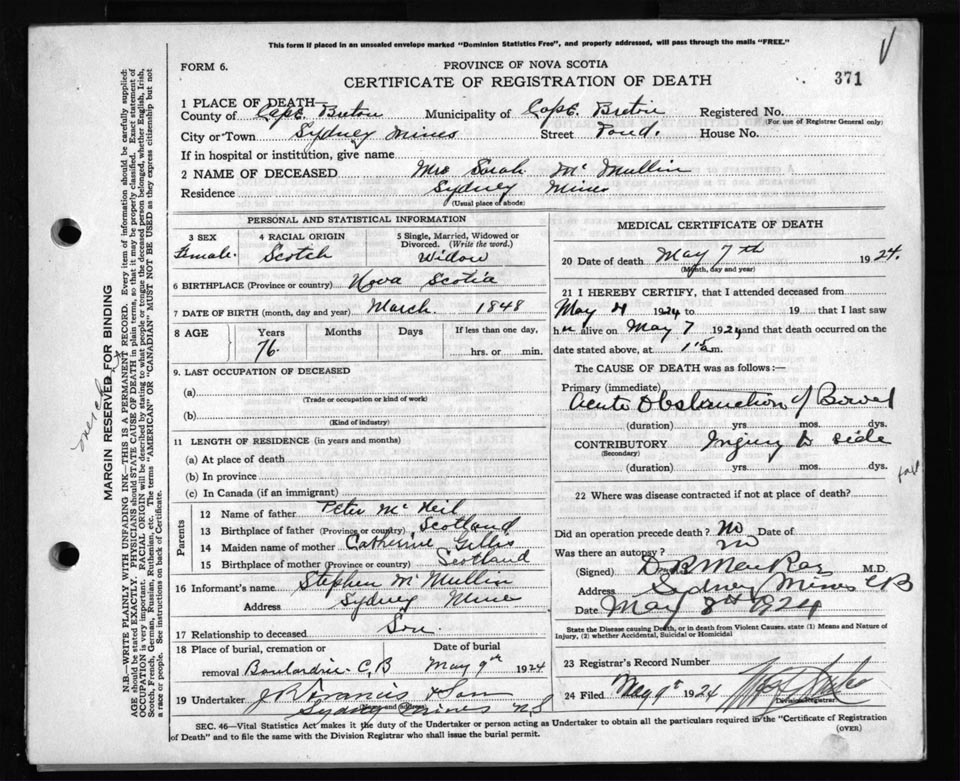 This form if placed in an unsealed envelope marked "Dominion Statistics Free", and properly addressed, will pass through the mails "FREE."
FORM 6.
PROVINCE OF NOVA SCOTIA
CERTIFICATE OF REGISTRATION OF DEATH
371
1 PLACE OF DEATH—
County of Cape Breton Municipality of Cape Breton Registered No.
(For use of Registrar General only)
City or Town Sydney Mines Street Pond. House No.
If in hospital or institution, give name
2 NAME OF DECEASED Mrs Sarah Mc Mullin
Residence Sydney Mines
(Usual place of abode)
PERSONAL AND STATISTICAL INFORMATION
3 SEX
Female.
4 RACIAL ORIGIN
Scotch
5 Single, Married, Widowed or Divorced. (Write the word.)
Widow
6 BIRTHPLACE (Province or country) Nova Scotia
7 DATE OF BIRTH (month, day and year) March 1848
8 AGE
Years
76
Months
Days
If less than one day,
hrs. or min.
9. LAST OCCUPATION OF DECEASED
(a)
(Trade or occupation or kind of work)
(b)
(Kind of industry)
11 LENGTH OF RESIDENCE (in years and months)
(a) At place of death
(b) In province
(c) In Canada (if an immigrant)
Parents
12 Name of father Peter Mc Neil
13 Birthplace of father (Province or country) Scotland
14 Maiden name of mother Catherine Gillis
15 Birthplace of mother (Province or country) Scotland
16 Informant's name Stephen Mc Mullin
Address Sydney Mines
17 Relationship to deceased Son
18 Place of burial, cremation or removal Boulardrie C,B
Date of burial
May 9th 1924
19 Undertaker J R Francis & Son
Sydney Mines N S
MEDICAL CERTIFICATE OF DEATH
20 Date of death May 7th 1924.
(Month, day and year)
21 I HEREBY CERTIFY, that I attended deceased from
May 4 1924 to 19 that I last saw
her alive on May 7 1924 and that death occurred on the
date stated above, at m.
The CAUSE OF DEATH was as follows:—
Primary (immediate)
Acute Obstruction of Bowel
(duration) yrs. mos. dys.
CONTRIBUTORY Injury to side
(Secondary)
fall
(duration) yrs. mos. dys.
22 Where was disease contracted if not at place of death?
Did an operation precede death? No Date of
Was there an autopsy? no
(Signed) M.D.
Address Sydney Mines CB
Date May 8th 1924
State the Disease causing Death, or in death from Violent Causes. state (1) Means and Nature of Injury, (2) whether Accidental, Suicidal or Homicidal
23 Registrar's Record Number
24 Filed May 9th 1924
Division Registrar
SEC. 46—Vital Statistics Act makes it the duty of the Undertaker or person acting as Undertaker to obtain all the particulars required in the "Certificate of Registration
of Death" and to file the same with the Division Registrar who shall issue the burial permit.
(OVER)
MARGIN RESERVED FOR BINDING
N.B.—WRITE PLAINLY WITH UNFADING INK—THIS IS A PERMANENT RECORD. Every item of information should be carefully supplied:
AGE should be stated EXACTLY. PHYSICIANS should STATE CAUSE OF DEATH in plain terms, so that it may be properly classified. Exact statement of
OCCUPATION is very important. RACIAL ORIGIN will be described by stating to what people or tongue the deceased person belonged, whether English, Irish,
Scotch, French, German, Russian, Ruthenian, etc. The terms "AMERICAN" OR "CANADIAN" MUST NOT BE USED as they express citizenship but not
a race or people. See instructions on back of Certificate.